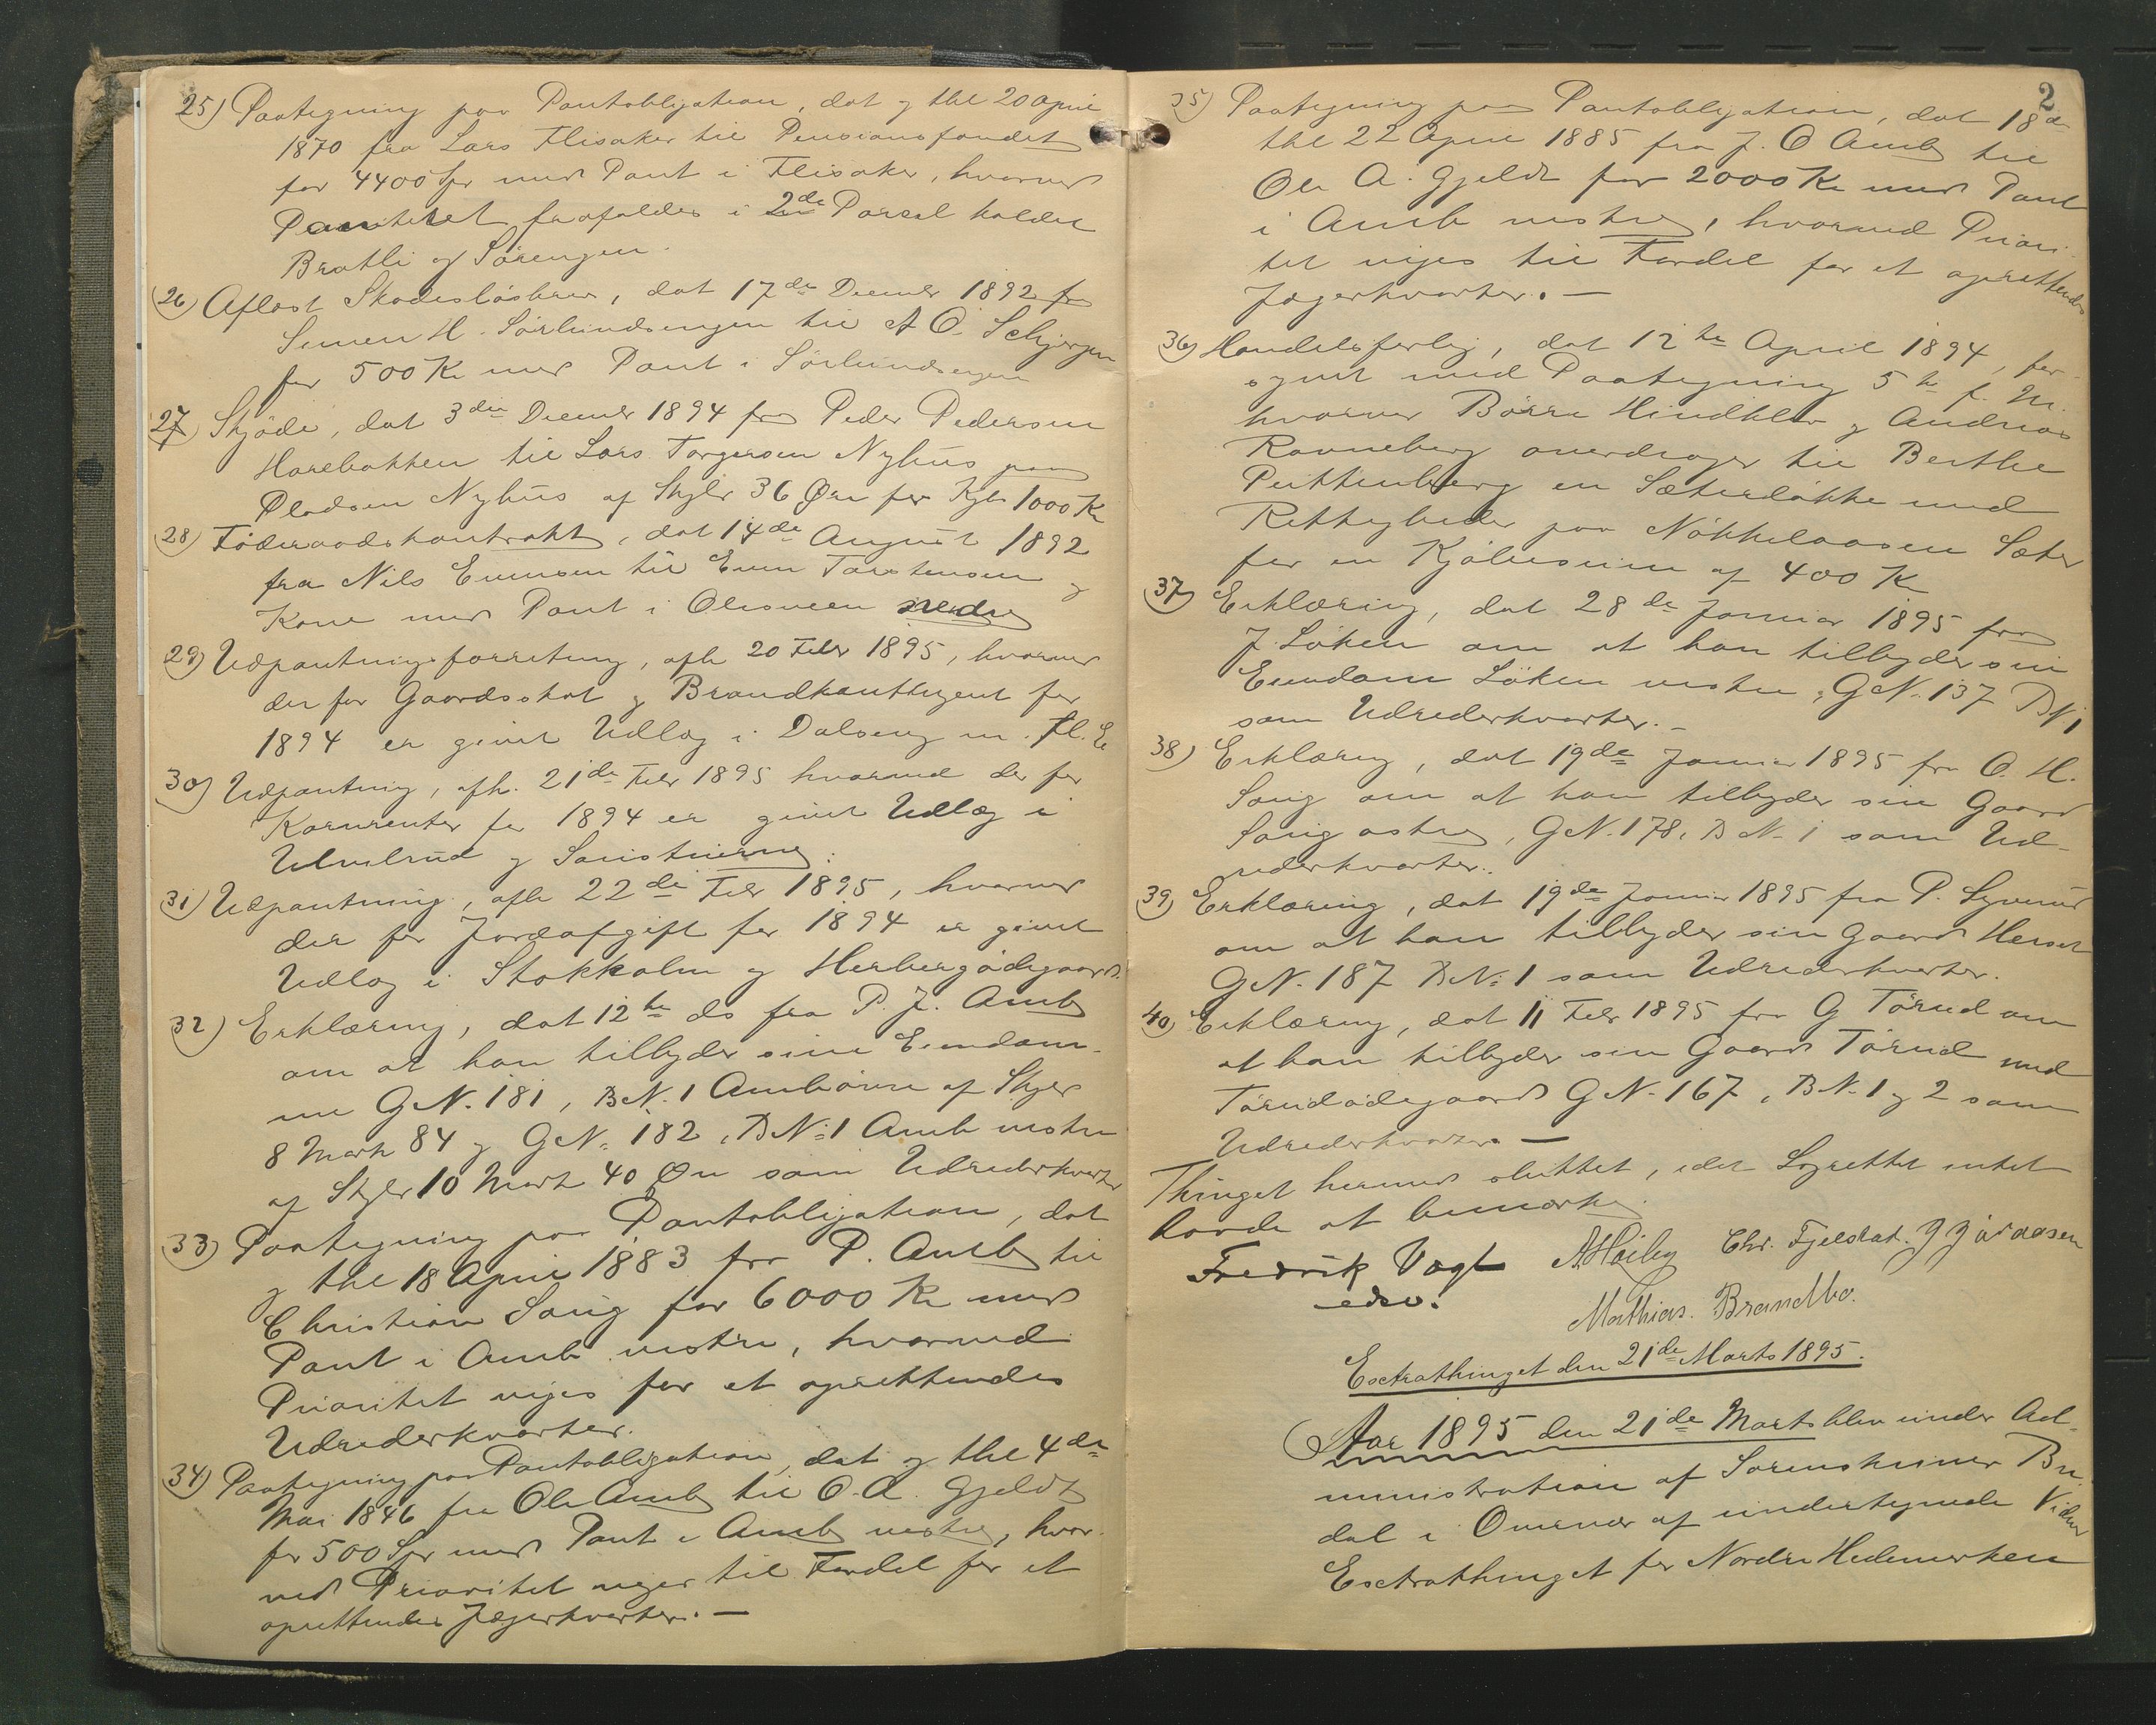 25) Paategning paa Pantobligation, dat og thl 20 April
1870 fra Lars Flisaker til Pensionsfondet
for 4400 Spr med Pant i Flisaker, hvorved
Panteret frafaldes i 2de Parsel kaldet
Bratli og Sörengen.
26) Aflöst Skadeslösbrev, dat 17de Decmbr 1892 fra
Simen H. Sörlundsengen til A O. Schjørgen
for 500 Kr med Pant i Sörlundsengen
27) Skjöde, dat 3die Decmbr 1894 fra Peder Pedersen
Harebakken til Lars Torgersen Nyhus paa
Pladsen Nyhus af Skyld 36 Øre for Kjb. 1000 Kr
28) Föderaadskontrakt, dat 14de August 1892
fra Nils Evensen til Even Torstensen og
Kone med Pant i Olesveen nedre
29) Udpantningsforretning, afh 20 Febr 1895, hvorved
der for Gaardsskat og Brandkontingent for
1894 er givet Udlæg i Dalseng m. fl. E.
30) Udpantning, afh. 21de Febr 1895 hvorved der for
Kornrenter for 1894 er givet Udlæg i
og
31) Udpantning, afh 22de Febr 1895, hvorved
der for Jordafgift for 1894 er givet
Udlæg i Stokholm og Herbergödegaard.
32) Erklæring, dat 12te ds fra P. J. Amb
om at han tillbyder sine Eiendom-
me G.N. 181, B.N. 1 Amb övre af Skyld
8 Mark 84 og G.N. 182, B.N. 1 Amb vestre
af Skyld 10 Mark 40 Øre som Udrederkvarter
33) Paategning paa Pantobligation, dat
og thl 18 April 1883 fra P. Amb til
Christian Saug for 6000 Kr med
Pant i Amb vestre, hvorved
Prioritet viges for et oprettendes
Udrederkvarter.
34) Paategning paa Pantobligation, dat og thl 4de
Mai 1846 fra Ole Amb til O. A. Gjeldt
for 500 Spr med Pant i Amb vestre, hvor-
ved Prioritet viger til Fordel for et
oprettendes Jægerkvarter. —
2
35) Paategning paa Pantobligation, dat 18de
thl 22 April 1885 fra J. O Amb til
Ole A. Gjeldt for 2000 Kr med Pant
i Amb vestre, hvorved Priori-
tet viges til Fordel for et oprettendes
Jægerkvarter. —
36) Handelsforlig, dat 12te April 1894, for-
synet med Paategning 5te f. M.
hvorved Börre Hindklev og Andreas
Ranneberg overdrager til Berthe
Pettenberg en Sæterlökke med
Rettigheder paa Nökkelaasen Sæter
for en Kjöbesum af 400 K
37) Erklæring, dat 28de Januar 1895 fra
J. Löken om at han tillbyder sin
Eiendom Löken vestre, G.N. 137 B.N. 1
som Udrederkvarter. —
38) Erklæring, dat 19de Januar 1895 fra O. H.
Saug om at han tillbyder sin Gaard
Saug østre, G.N. 178, B.N. 1 som Ud-
rederkvarter.
39) Erklæring, dat 19de Januar 1895 fra P. Lyverud
om at han tillbyder sin Gaard
G.N. 187 B.N. 1 som Udrederkvarter.
40) Erklæring, dat 11 Febr 1895 fra G Törud om
at han tillbyder sin Gaard Törud med
Törudödegaard G.N. 167, B.N. 1 og 2 som
Udrederkvarter. —
Thinget hermed sluttet, idet Lagrettet intet
havde at bemærke.
Fredrik Vogt A. Høiby Chr. Fjelstad. J Jjøraasen
edsv.
Mathias. Brandbo.
Extrathinget den 21de Marts 1895.
Aar 1895 den 21de Marts blev under Ad-
ministration af Sorenskriver Bre-
dal i Overvær af undertegnede Vidner
Extrathinget for Nordre Hedemarken